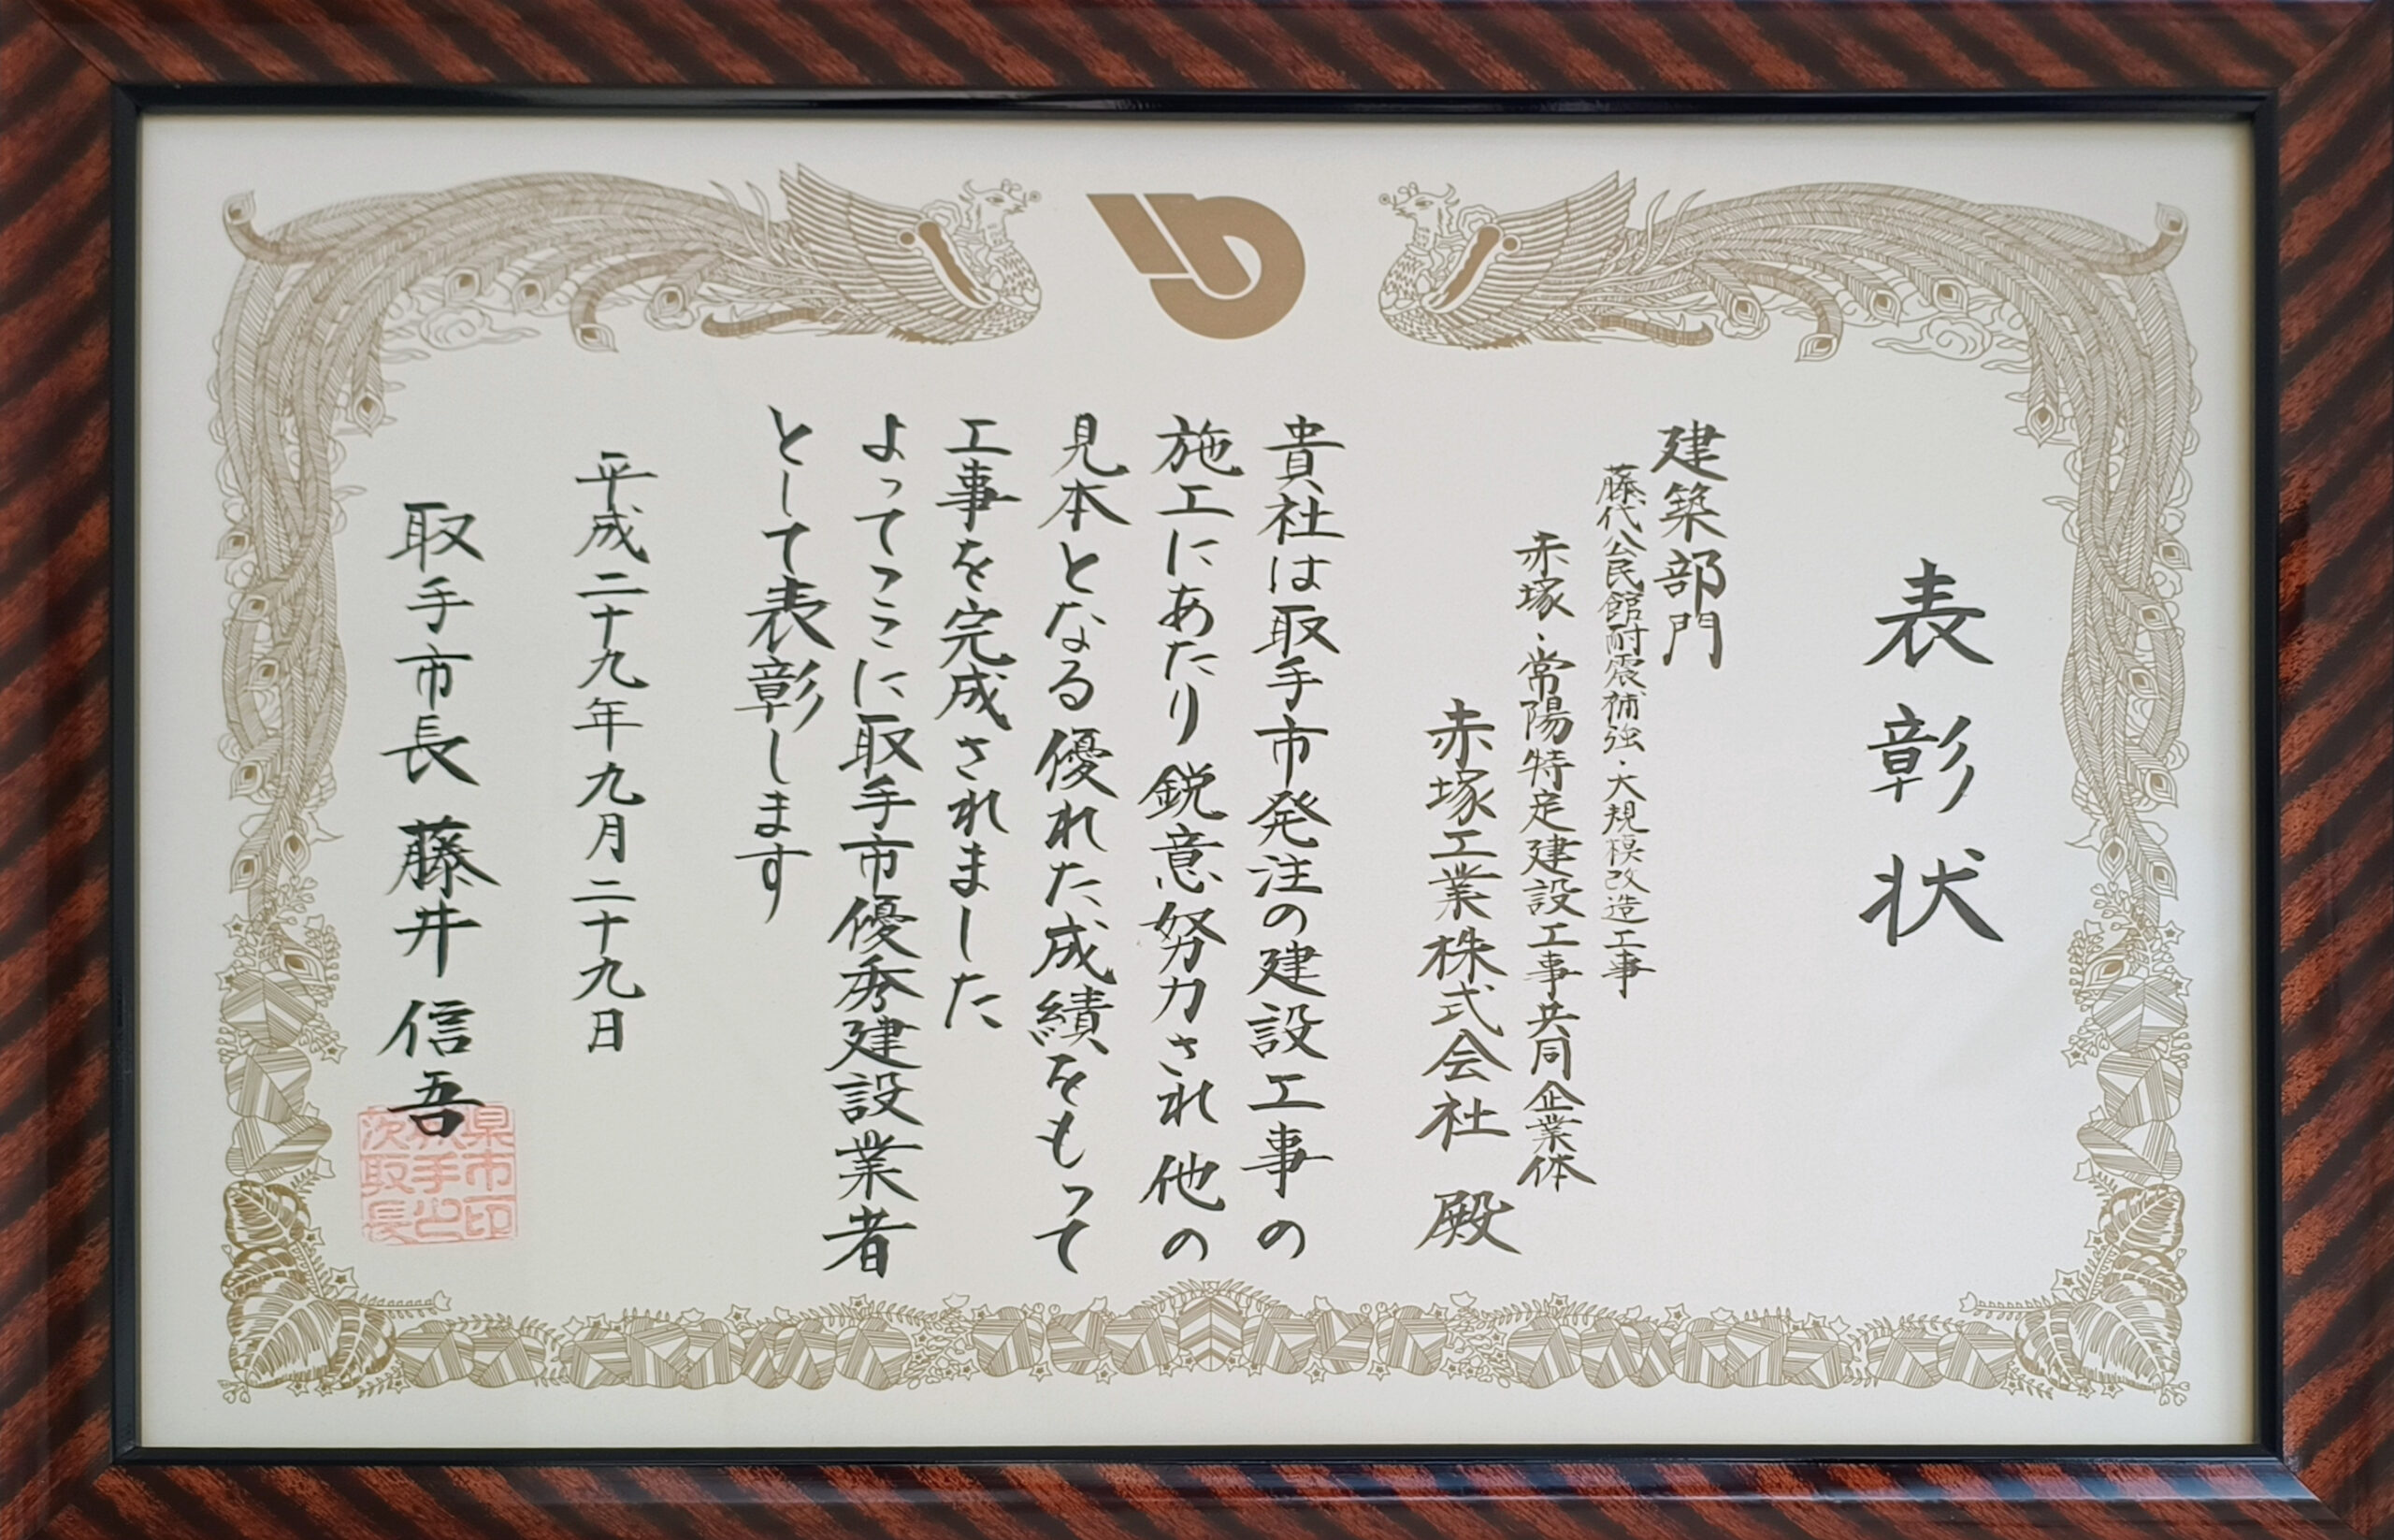 表彰状
建築部門
藤代公民館耐震補強・大規模改造工事
赤塚・常陽特定建設工事共同企業体
赤塚工業株式会社 殿
貴社は取手市発注の建設工事の
施工にあたり鋭意努力され他の
見本となる優れた成績をもって
工事を完成されました
よってここに取手市優秀建設業者
として表彰します
平成二十九年九月二十九日
取手市長 藤井信吾
茨城県
取手市
長之印